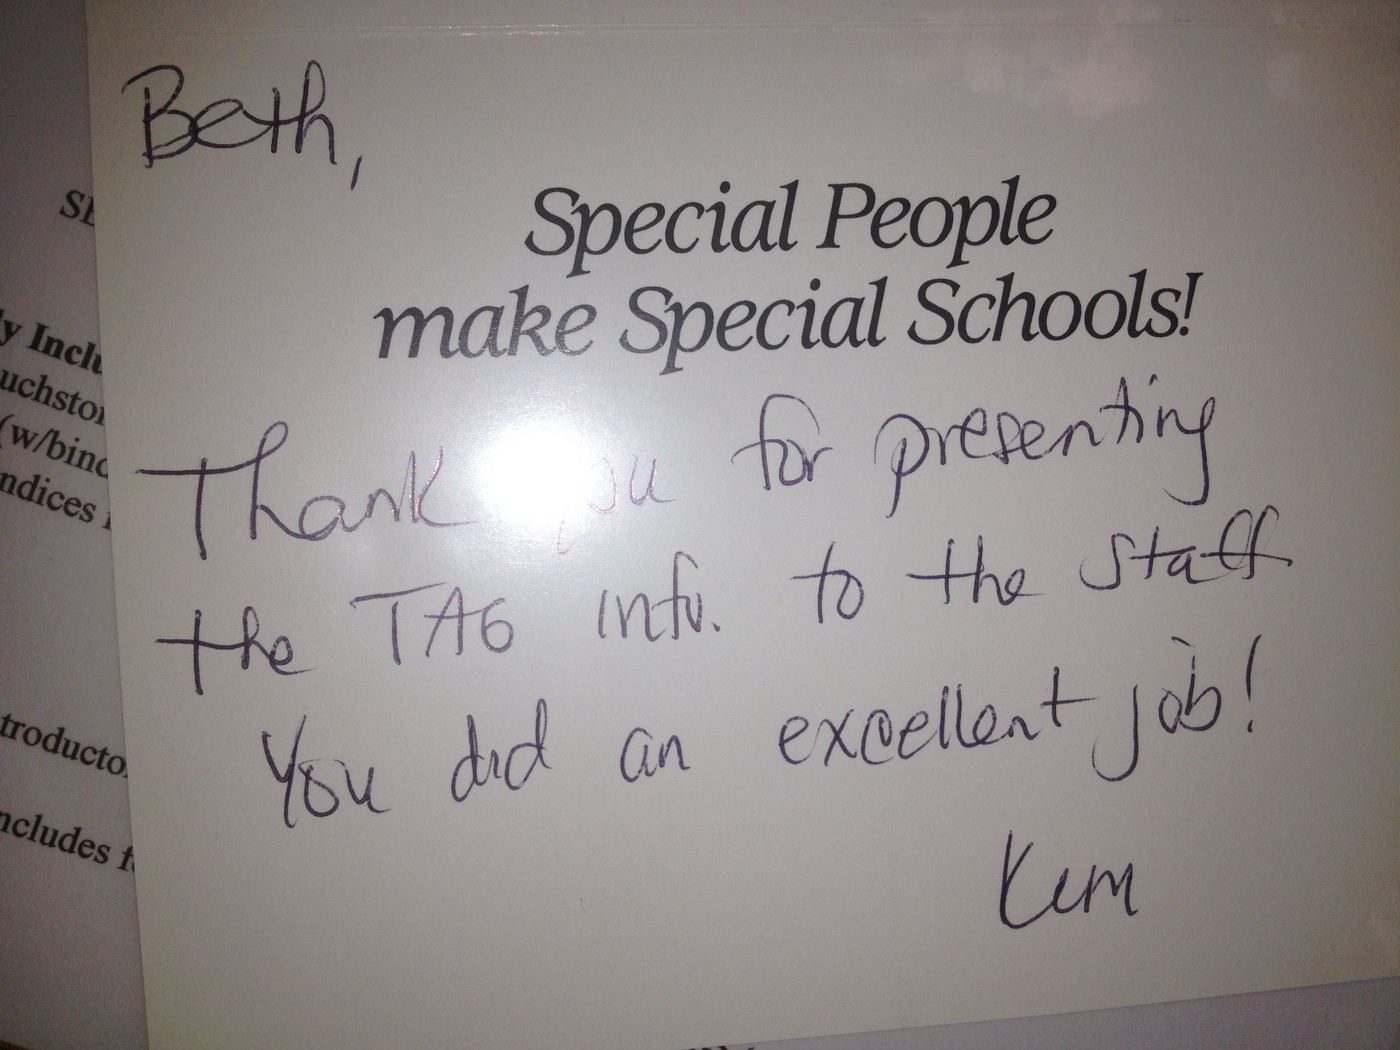 Beth,
Special People
make Special Schools!
Thank you for presenting
the TAG info. to the staff
You did an excellent job!
Kem
y Inclu
uchstor
(w/bind
ndices
troducto
ncludes f